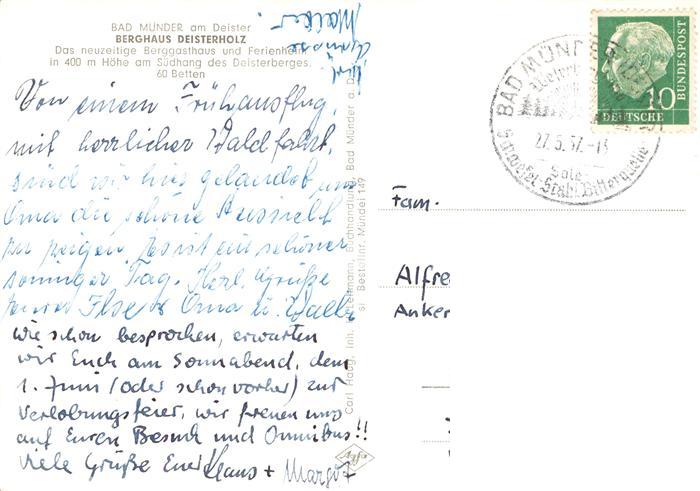 BAD MÜNDER am Deister
BERGHAUS DEISTERHOLZ
Das neuzeitige Berggasthaus und Ferienheim
in 400 m Höhe am Südhang des Deisterberges.
60 Betten
Von einem Frühausflug,
mit herrlicher Waldfahrt,
sind wir hier gelandet um
Oma die schöne Aussicht
zu zeigen. Es ist ein schöner
sonniger Tag. Herzl. Grüße
Ilse Oma u. Walter
wie schon besprochen, erwarten
wir Euch am Sonnabend, dem
1. Juni (oder schon vorher) zur
Verlobungsfeier, wir freuen uns
auf Euren Besuch und Omnibus!!
Viele Grüße Euer Klaus + Margot
Carl Haag, Inh. Buchhandlung, Bad Münder a. D.
Bestellnr. Münder 149
Agfa
BAD MÜNDER
27.5.57.-13
Sole-
DEUTSCHE BUNDESPOST
10
Fam.
Alfre
Anker